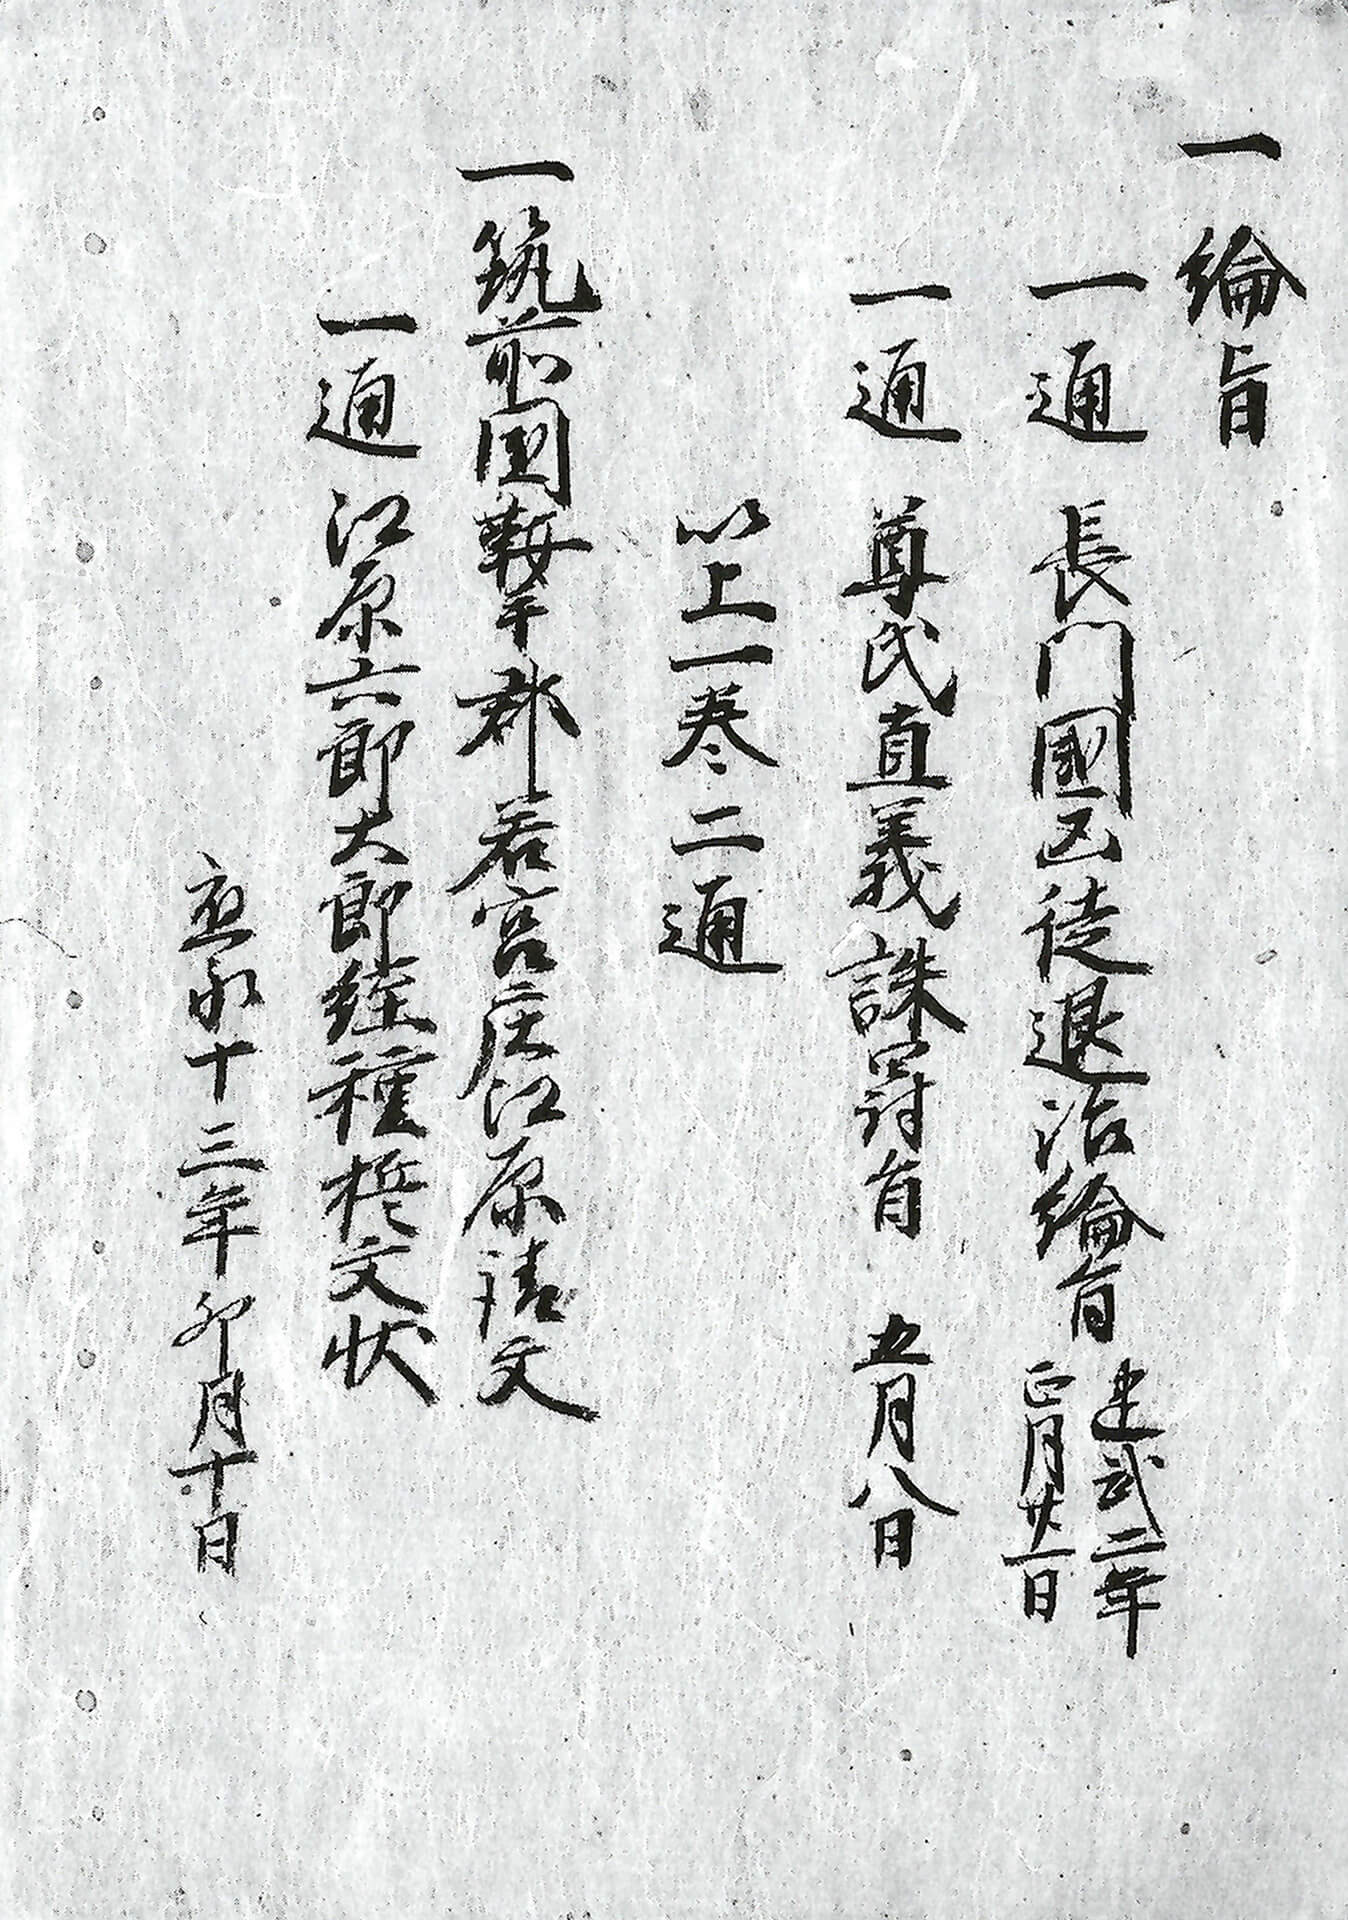 一綸旨
一通 長門國凶徒退治綸旨 建武二年
正月廿一日
一通 尊氏直義誅罸旨 五月八日
以上一巻二通
一筑前國鞍手郡若宮庄江原請文
一通 江原六郎大郎経種捴文状
應永十三年卯月十日